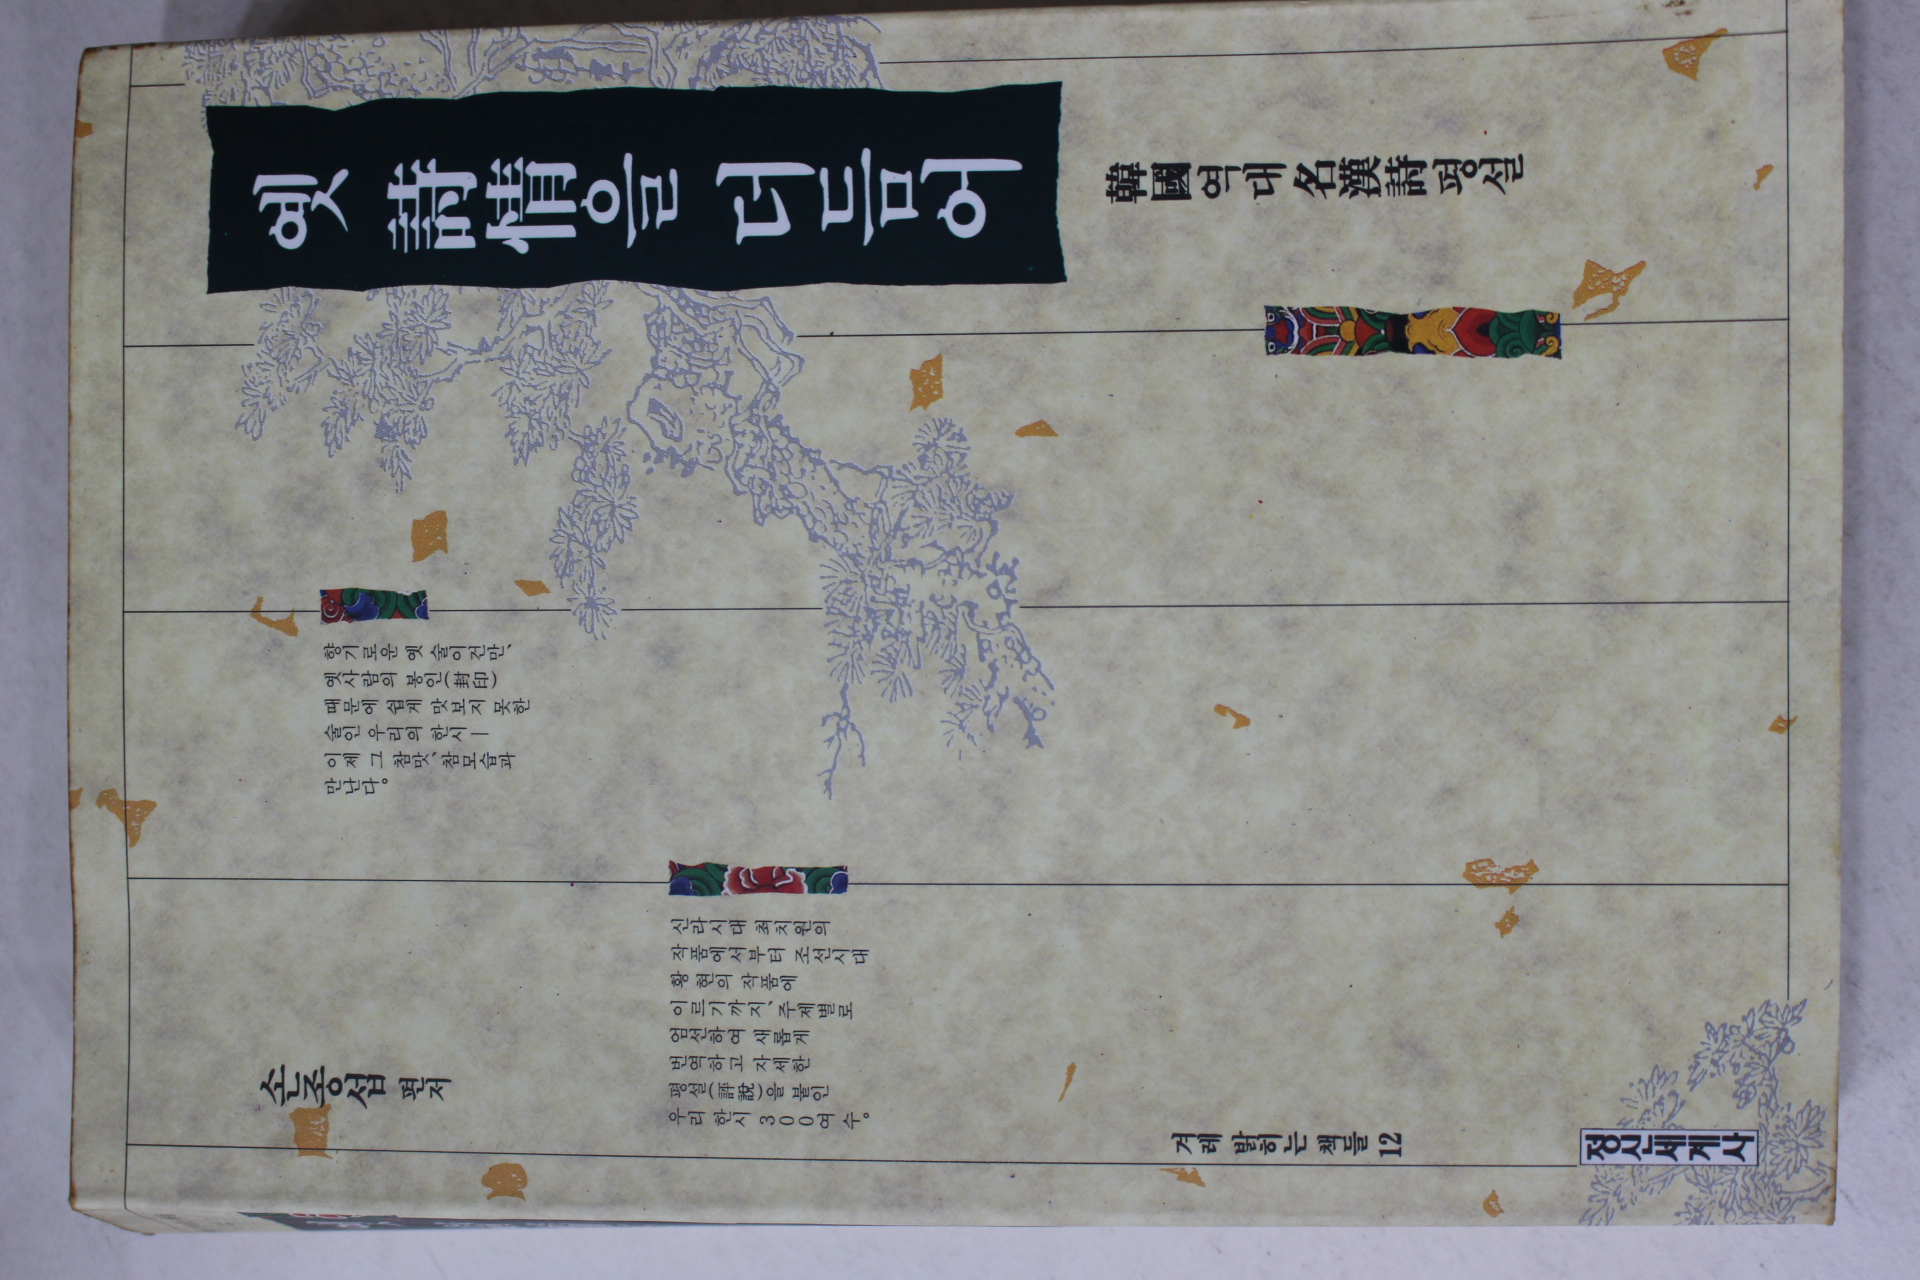 옛 詩情을 더듬어
韓國역대 名漢詩평설
향기로운 옛 술이건만,
옛사람의 봉인(封印)
때문에 쉽게 맛보지 못한
술인 우리의 한시―
이제 그 참맛, 참모습과
만난다.
신라시대 최치원의
작품에서부터 조선시대
황현의 작품에
이르기까지, 주제별로
엄선하여 새롭게
번역하고 자세한
평설(評說)을 붙인
우리 한시 300여 수.
손종섭 편저
겨레 밝히는 책들 12
정신세계사